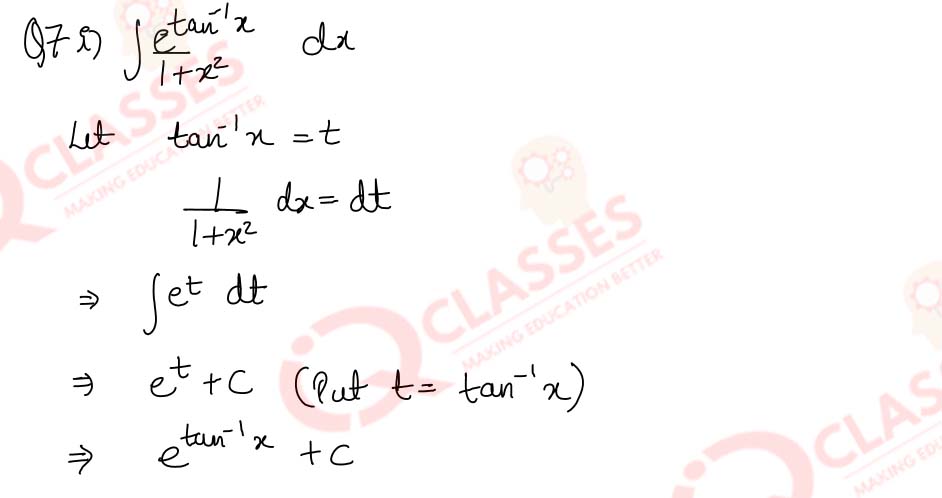 Q7 i) ∫ e^(tan⁻¹x) / (1+x²) dx
Let tan⁻¹x = t
1/(1+x²) dx = dt
⇒ ∫ e^t dt
⇒ e^t + C (Put t = tan⁻¹x)
⇒ e^(tan⁻¹x) + C
CLASSES
MAKING EDUCATION BETTER
iQ CLASSES
MAKING EDUCATION BETTER
CLASSES
MAKING EDU